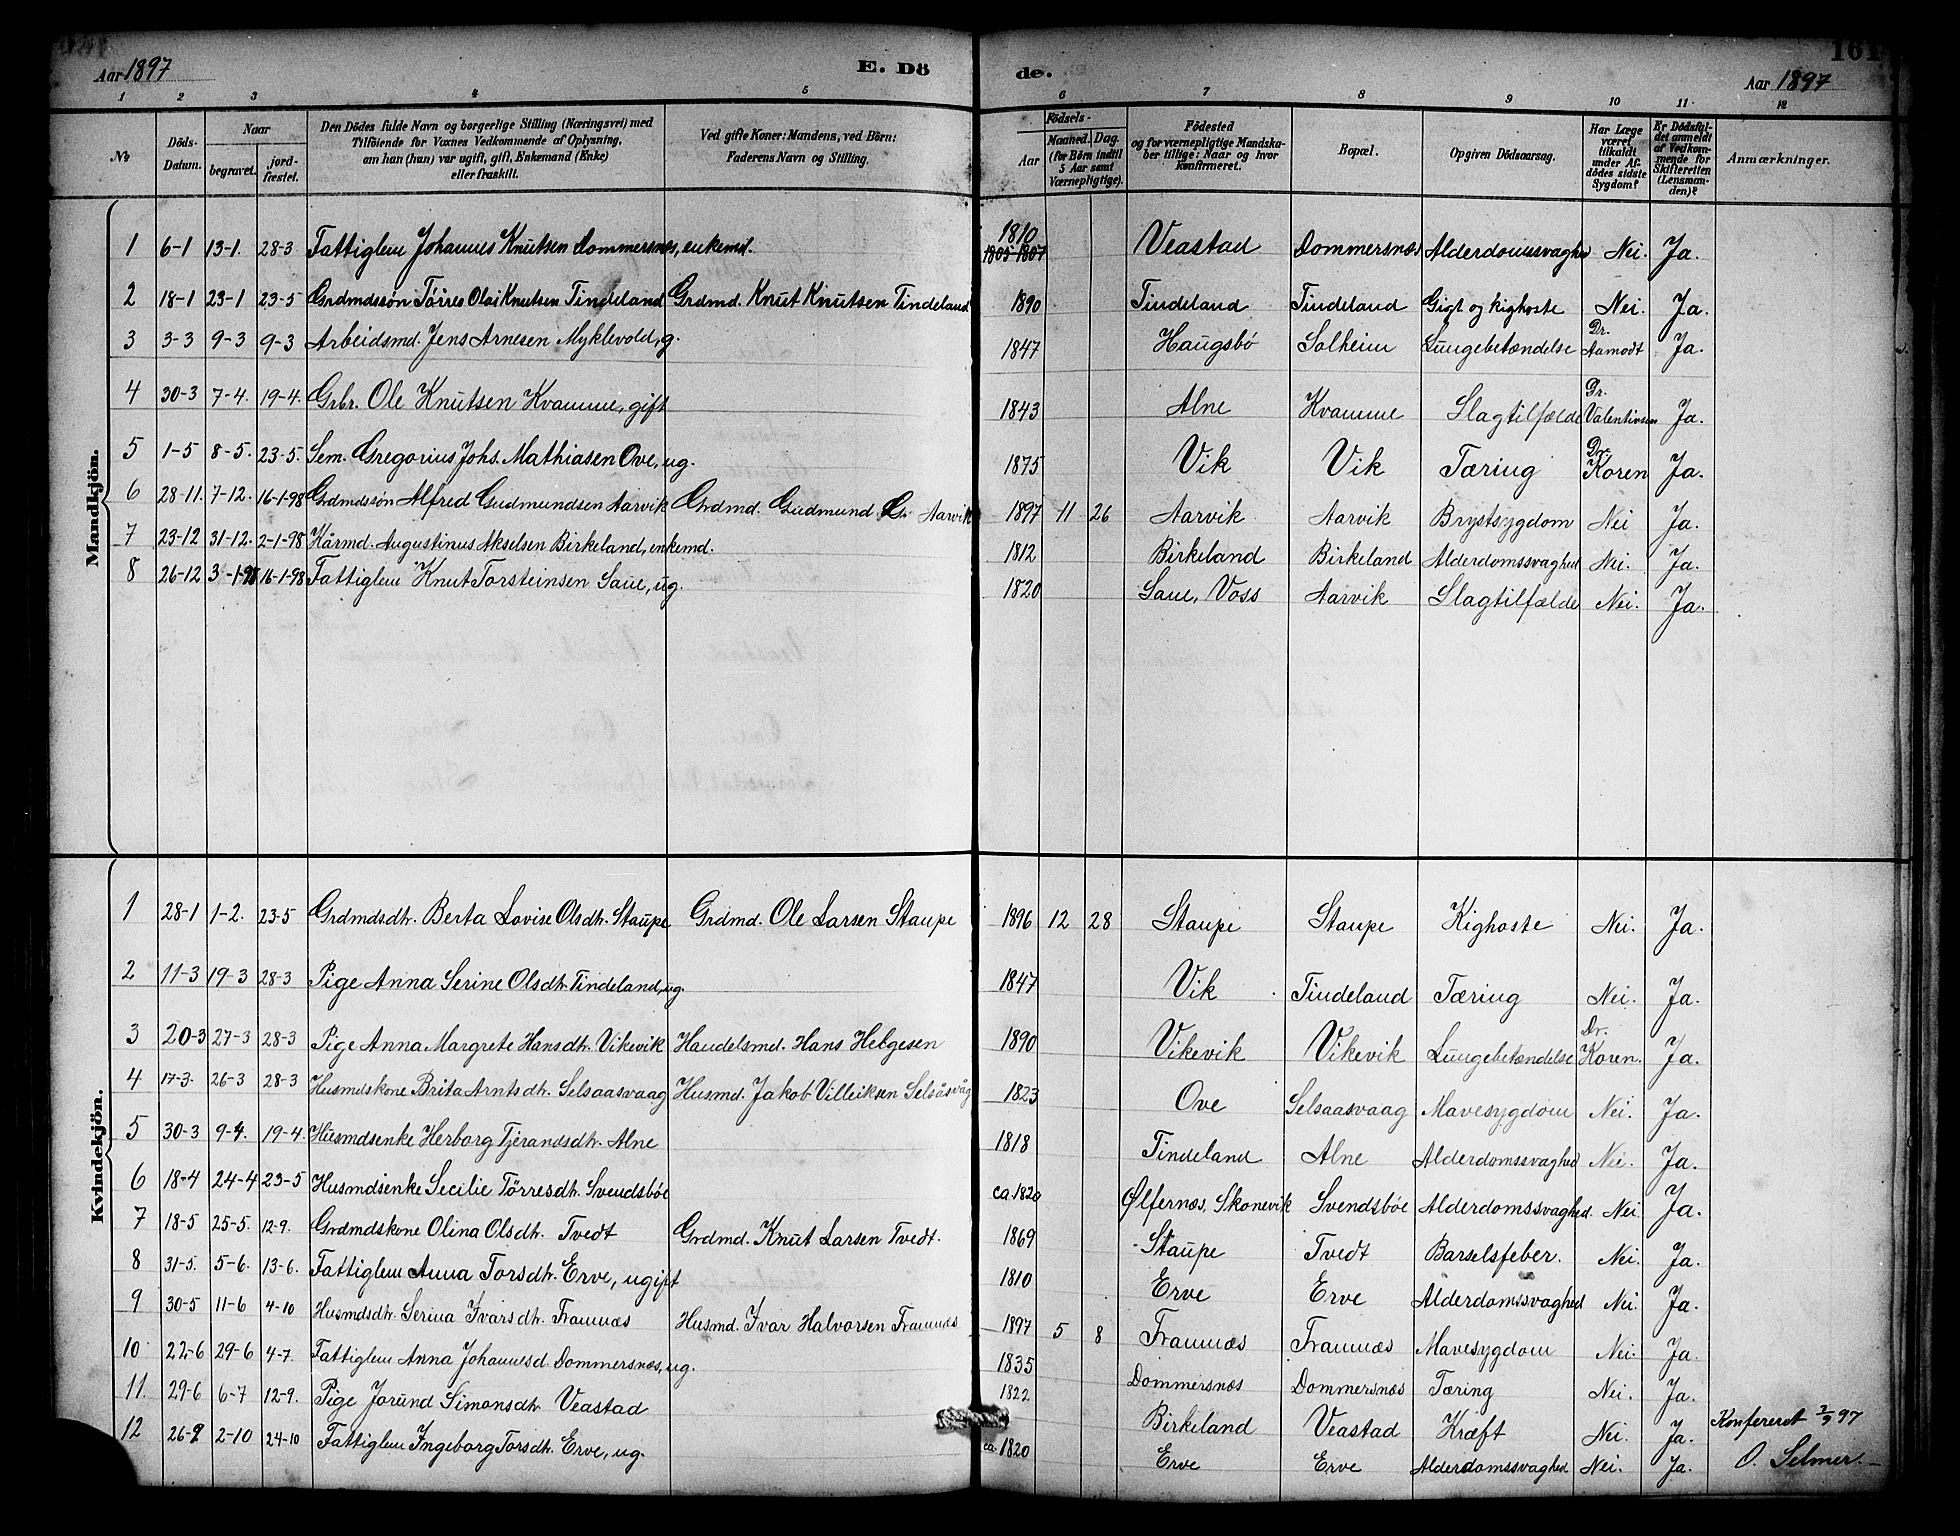 Aar 1897 E. Dö de. 161
Aar 1897
1 2 3 4 5 6 7 8 9 10 11 12
No
Döds-Datum.
Naar
begravet.
jord-fæstet.
Den Dödes fulde Navn og borgerlige Stilling (Næringsvei) med
Tilföiende for Voxnes Vedkommende af Oplysning,
om han (hun) var ugift, gift, Enkemand (Enke)
eller fraskilt.
Ved gifte Koner: Mandens, ved Börn:
Faderens Navn og Stilling.
Födsels-
Aar
Maaned. Dag.
(for Börn indtil
5 Aar samt
Værnepligtige).
Födested
og for værnepligtige Mandska-
ber tillige: Naar og hvor
konfirmeret.
Bopæl.
Opgiven Dödsaarsag.
Har Læge
været
tilkaldt
under Af-
dödes sidste
Sygdom?
Er Dödsfal-
det anmeldt
af Vedkom-
mende for
Skifteretten
(Lensman-
den)?
Anmærkninger.
Mandkjön.
1 6-1 13-1. 28-3 Fattiglem Johannes Knutsen Dommersnæs, enkemd. 1810 1805-1807 Veastad Dommersnæs Alderdomssvaghed Nei. Ja.
2 18-1 23-1 23-5 Grdmdssøn Tørres Olai Knutsen Tindeland Grdmd. Knut Knutsen Tindeland 1890 Tindeland Tindeland Gigt og kighoste Nei. Ja.
3 3-3 9-3 9-3 Arbeidsmd. Jens Arnesen Myklevold, g. 1847 Haugsbø Solheim Lungebetændelse Dr. Aamodt Ja.
4 30-3 7-4. 19-4. Grbr. Ole Knutsen Kvamme, gift 1843 Alne Kvamme Slagtilfælde Dr. Valentinsen Ja.
5 1-5 8-5. 23-5. Sem. Gregorius Johs. Mathiasen Ove, ug. 1875 Vik Vik Tæring Dr. Koren Ja.
6 28-11. 7-12. 16-1-98 Grdmdssøn Alfred Gudmundsen Aarvik Grdmd. Gudmund G. Aarvik 1897 11 26 Aarvik Aarvik Brystsygdom Nei Ja.
7 23-12 31-12. 2-1-98 Kårmd. Augustinus Akselsen Birkeland, enkemd. 1812 Birkeland Birkeland Alderdomssvaghed Nei. Ja.
8 26-12 3-1-98 16-1-98 Fattiglem Knut Torsteinsen Saue, ug. 1820 Saue, Voss Aarvik Slagtilfælde Nei. Ja.
Kvindekjön.
1 28-1 1-2. 23-5 Grdmdsdtr. Berta Lovise Olsdtr. Staupe Grdmd. Ole Larsen Staupe 1896 12 28 Staupe Staupe Kighoste Nei. Ja.
2 11-3 19-3 28-3 Pige Anna Serine Olsdtr. Tindeland, ug. 1847 Vik Tindeland Tæring Nei. Ja.
3 20-3 27-3 28-3 Pige Anna Margrete Hansdtr. Vikevik Handelsmd. Hans Helgesen 1890 Vikevik Vikevik Lungebetændelse Dr. Koren. Ja.
4 17-3. 26-3 28-3 Husmdskone Brita Arntsdtr. Selsaasvaag Husmd. Jakob Villeiksen Selsåsvåg 1823 Ove Selsaasvaag Mavesygdom Nei. Ja.
5 30-3 9-4. 19-4. Husmdsenke Herborg Tjerandsdtr. Alne 1818 Tindeland Alne Alderdomssvaghed Nei. Ja.
6 18-4 24-4 23-5 Husmdsenke Secilie Tørresdtr. Svendsbøe ca 1820 Ølfernæs, Skonevik Svendsbøe Alderdomssvaghed. Nei Ja.
7 18-5 25-5. 12-9. Grdmdskone Olina Olsdtr. Tvedt Grdmd. Knut Larsen Tvedt. 1869 Staupe Tvedt Barselsfeber. Nei. Ja.
8 31-5. 5-6. 13-6. Fattiglem Anna Torsdtr. Erve, ugift 1810 Erve Erve Alderdomssvaghed Nei. Ja.
9 30-5 11-6 4-10 Husmdsdtr. Serina Ivarsdtr. Framnæs Husmd. Ivar Halvorsen Framnæs 1897 5 8 Framnæs Framnæs Mavesygdom Nei. Ja.
10 22-6 29-6 4-7. Fattiglem Anna Johannesd. Dommersnæs, ug. 1835 Dommersnæs Dommersnæs Tæring Nei. Ja.
11. 29-6 6-7 12-9. Pige Jorund Simonsdtr. Veastad 1822 Birkeland Veastad Kræft Nei. Ja. Konfereret 97
12 26-9 2-10 24-10 Fattiglem Ingeborg Torsdtr. Erve, ug. ca 1820 Erve Erve Alderdomssvaghed Nei. Ja. O. Selmer.